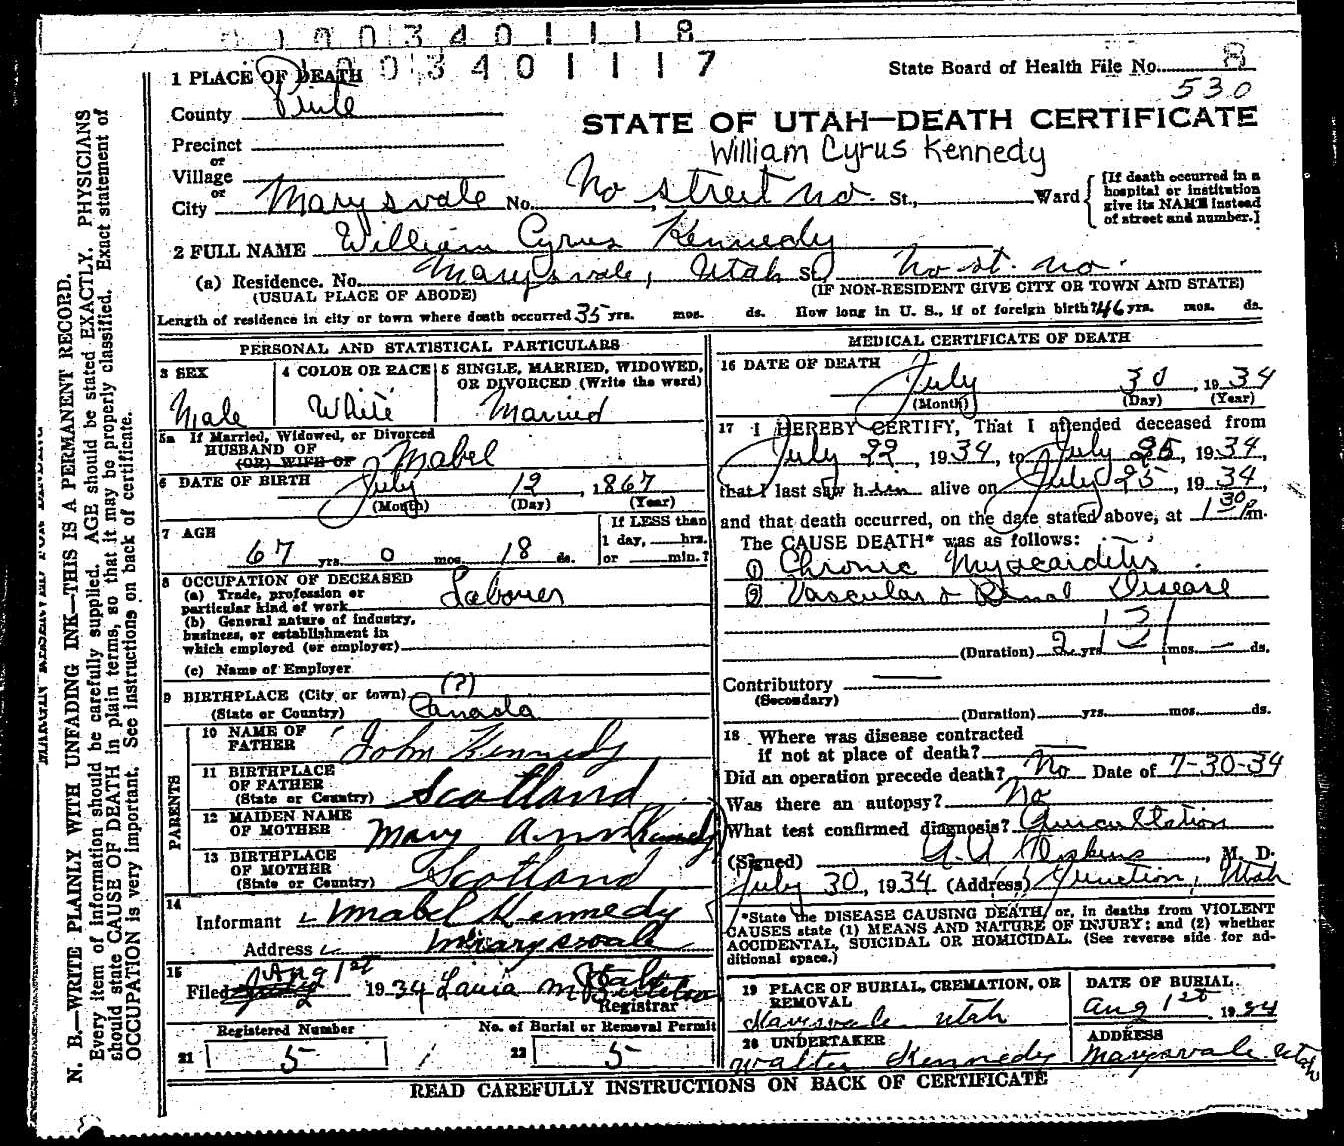 0 1 0 0 3 4 0 1 1 1 8
0 0 3 4 0 1 1 1 7
1 PLACE OF DEATH
State Board of Health File No. 8
530
County Piute
STATE OF UTAH—DEATH CERTIFICATE
William Cyrus Kennedy
Precinct
or
Village
or
City Marysvale No. No street no. St., Ward
[If death occurred in a hospital or institution give its NAME instead of street and number.]
2 FULL NAME William Cyrus Kennedy
(a) Residence. No. Marysvale, Utah St. No st. no.
(USUAL PLACE OF ABODE) (IF NON-RESIDENT GIVE CITY OR TOWN AND STATE)
Length of residence in city or town where death occurred 35 yrs. mos. ds. How long in U. S., if of foreign birth? 46 yrs. mos. ds.
PERSONAL AND STATISTICAL PARTICULARS
3 SEX
Male
4 COLOR OR RACE
White
5 SINGLE, MARRIED, WIDOWED,
OR DIVORCED (Write the word)
Married
5a If Married, Widowed, or Divorced
HUSBAND OF
(OR) WIFE OF Mabel
6 DATE OF BIRTH July 12, 1867
(Month) (Day) (Year)
7 AGE
67 yrs. 0 mos. 18 ds.
If LESS than
1 day, hrs.
or min.?
8 OCCUPATION OF DECEASED
(a) Trade, profession or
particular kind of work Laborer
(b) General nature of industry,
business, or establishment in
which employed (or employer)
(c) Name of Employer
9 BIRTHPLACE (City or town) (?)
(State or Country) Canada
PARENTS
10 NAME OF
FATHER John Kennedy
11 BIRTHPLACE
OF FATHER
(State or Country) Scotland
12 MAIDEN NAME
OF MOTHER Mary Ann (Kennedy)
13 BIRTHPLACE
OF MOTHER
(State or Country) Scotland
14
Informant Mabel Kennedy
Address Marysvale
15
Filed Aug 1st 1934 M
Registrar
Registered Number
21 5
No. of Burial or Removal Permit
22 5
MEDICAL CERTIFICATE OF DEATH
16 DATE OF DEATH
July 30, 1934
(Month) (Day) (Year)
17 I HEREBY CERTIFY, That I attended deceased from
July 22, 1934, to July 25, 1934,
that I last saw him alive on July 25, 1934,
and that death occurred, on the date stated above, at 1 30 Pm.
The CAUSE DEATH* was as follows:
(1) Chronic Myocarditis
(2) Vascular & Renal Disease
131
(Duration) 2 yrs. mos. — ds.
Contributory
(Secondary)
(Duration) yrs. mos. ds.
18 Where was disease contracted
if not at place of death?
Did an operation precede death? No Date of 7-30-34
Was there an autopsy? No
What test confirmed diagnosis? Auscultation
(Signed) M. D.
July 30, 1934 (Address) Junction, Utah
*State the DISEASE CAUSING DEATH, or, in deaths from VIOLENT
CAUSES state (1) MEANS AND NATURE OF INJURY; and (2) whether
ACCIDENTAL, SUICIDAL OR HOMICIDAL. (See reverse side for ad-
ditional space.)
19 PLACE OF BURIAL, CREMATION, OR
REMOVAL
Marysvale Utah
DATE OF BURIAL
Aug 1st, 1934
20 UNDERTAKER
Walter Kennedy
ADDRESS
Marysvale Utah
READ CAREFULLY INSTRUCTIONS ON BACK OF CERTIFICATE
MARGIN RESERVED FOR BINDING
N. B.—WRITE PLAINLY WITH UNFADING INK—THIS IS A PERMANENT RECORD.
Every item of information should be carefully supplied. AGE should be stated EXACTLY. PHYSICIANS
should state CAUSE OF DEATH in plain terms, so that it may be properly classified. Exact statement of
OCCUPATION is very important. See instructions on back of certificate.